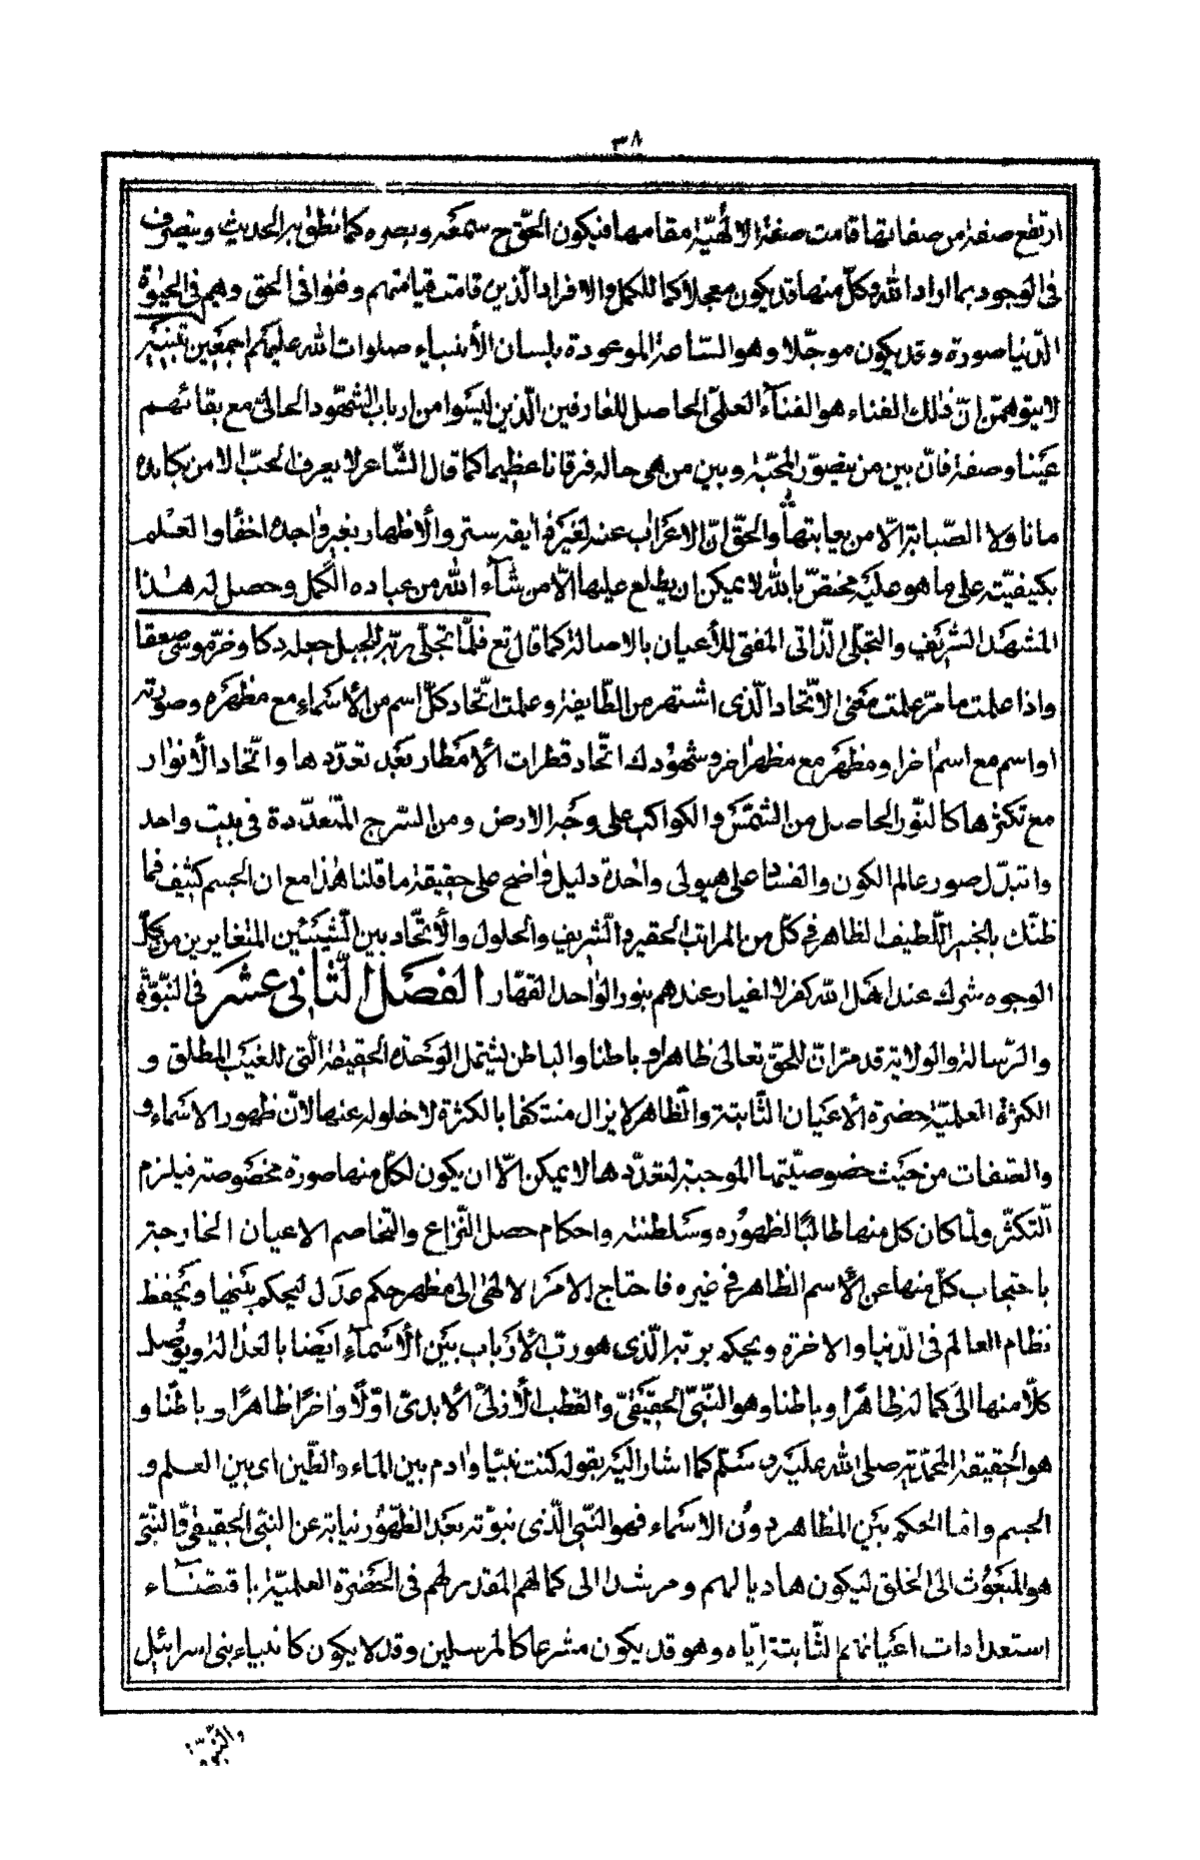 ٣٨
ارتفع صفة من صفاتها قامت صفة الالهيّة مقامها فيكون الحقّ ح سمعه وبصره كما نطق به الحديث ويتصرف
فى الوجود بما اراد الله وكلّ منها قد يكون معجلا كما للكمل والافراد الّذين قامت قيامتهم وفنوا فى الحق وهم فى الحيوة
الدّنيا صورة وقد يكون موجّلا وهو السّاعة الموعودة بلسان الأنبياء صلوات الله عليهم اجمعين تنبيه
لا يتوهمنّ انّ ذلك الفناء هو الفنآء العلمىّ الحاصل للعارفين الّذين ليسوا من ارباب الشّهود الحالىّ مع بقائهم
عينا وصفة فانّ بين من يتصوّر المحبّة وبين من هى حاله فرقانا عظيما كما قال الشّاعر لا يعرف الحبّ الا من يكابده
ولا الصّبابة الّا من يعانيها والحقّ انّ الاعراب عنه لغير ذايقه ستر والاظهار بغير واجده اخفاء والعلم
بكيفيّته على ما هو عليه مختصّ بالله لا يمكن ان يطلع عليها الّا من شآء الله من عباده الكمل وحصل له هذا
المشهد الشّريف والتجلّى الذّاتى المفنى للأعيان بالاصالة كما قال تع فلمّا تجلّى ربّه للجبل جعله دكا وخرّ موسى صعقا
واذا علمت ما مرّ علمت معنى الاتّحاد الّذى اشتهر من الطّايفة وعلمت اتّحاد كلّ اسم من الأسماء مع مظهره وصورته
او اسم مع اسم اخر او مظهر مع مظهر اخر وشهودك اتّحاد قطرات الأمطار بعد تعدّدها واتّحاد الأنوار
مع تكثرها كالنّور الحاصل من الشّمس والكواكب على وجه الارض ومن السّرج المتعدّدة فى بيت واحد
وتبدّل صور عالم الكون والفساد على هيولى واحدة دليل واضح على حقيقة ما قلنا هذا مع ان الجسم كثيف فما
ظنّك بالخبير اللّطيف الظاهر فى كلّ من المراتب الحقير والشّريف والحلول والأتّحاد بين الشّيئين المتغايرين من كلّ
الوجوه شرك عند اهل الله كفر لا اغيار عندهم بنور الواحد القهّار الفصل الثّانى عشر فى النبّوة
والرّسالة والولاية قد مرّ انّ للحقّ تعالى ظاهرا وباطنا والباطن ليشمل الوحدة الحقيقة الّتى للغيب المطلق و
الكثرة العلميّة حضرة الأعيان الثّابتة والظّاهر لا يزال متكنفا بالكثرة لا خلو له عنها لانّ ظهور الاسماء و
والصّفات من حيث خصوصيّتها الموجبة لتعدّدها لا يمكن الّا ان يكون لكلّ منها صورة مخصوصة فيلزم
التّكثّر ولمّا كان كل منها طالبًا لظهوره وسلطنته واحكام حصل النّزاع والتّخاصم الاعيان الخارجية
باحتجاب كلّ منها عن الأسم الظاهر فى غيره فاحتاج الامر الالهىّ الى مظهر حكم عدل ليحكم بينها ويحفظ
نظام العالم فى الدّنيا والاخرة ويحكم بربّه الّذى هو ربّ الأرباب بين الأسمآء ايضا بالعدالة ويوصل
كلّا منها الى كماله ظاهرًا وباطنا وهو النّبىّ الحقيقىّ والقطب الأزلىّ الأبدىّ اوّلًا واخرًا ظاهرًا وباطنًا و
هو الحقيقة المحمّديّة صلى الله عليه وسلّم كما اشار اليه بقوله كنت نبيّا وادم بين الماء والطّين اى بين العلم و
الجسم وامّا الحكم بين المظاهر دون الاسماء فهو النّبىّ الّذى نبوّته بعد الظّهور نيابة عن النبى الحقيقىّ فالنّبىّ
هو المبعوث الى الخلق ليكون هاديا لهم ومرشدا الى كمالهم المقدر لهم فى الحضرة العلميّة باقتضآء
استعدادات اعيانهم الثّابتة ايّاه وهو قد يكون مشرعا كالمرسلين وقد لا يكون كانبياء بنى اسرائيل
والنّبوّة